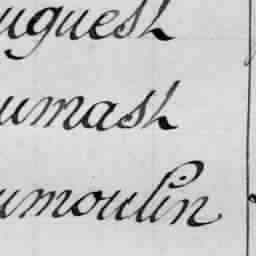 uguest
umast
umoulin